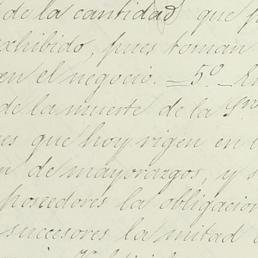 de la cantidad que
exhibido, pues toman
en el negocio. = 5º.
de la muerte de la Sra
es que hoy rigen en
de mayorazgos, y
poseedores la obligacion
sucesores la mitad